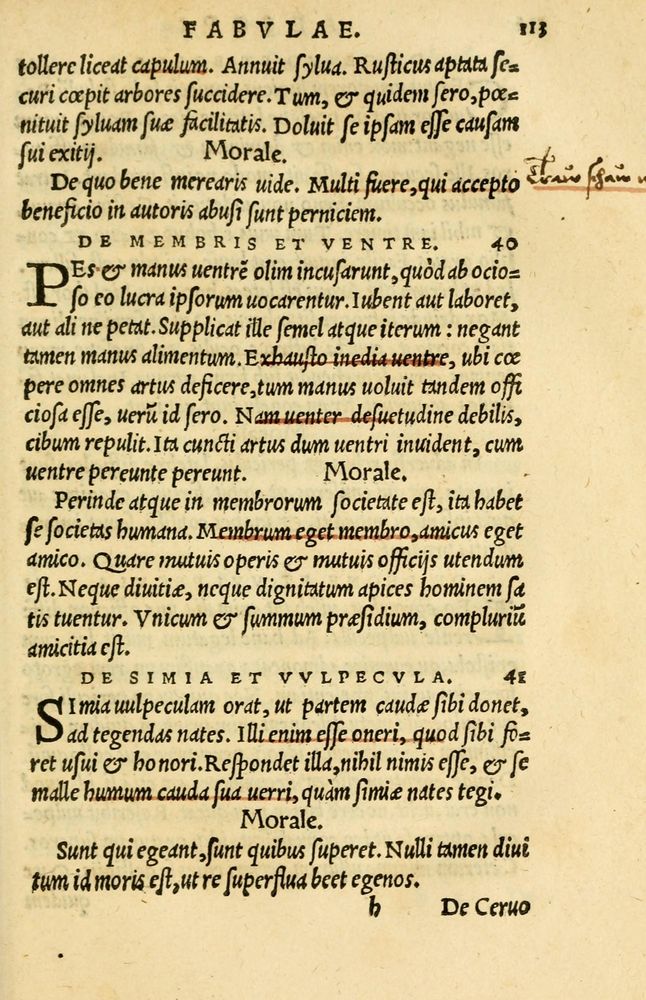 FABVLAE. 113
tollere liceat capulum. Annuit sylua. Rusticus aptata se=
curi cœpit arbores succidere. Tum, & quidem sero, pœ=
nituit syluam suæ facilitatis. Doluit se ipsam esse causam
sui exitij. Morale.
De quo bene merearis uide. Multi fuere, qui accepto
beneficio in autoris abusi sunt perniciem.
DE MEMBRIS ET VENTRE. 40
PEs & manus uentrē olim incusarunt, quòd ab ocio=
so eo lucra ipsorum uocarentur. Iubent aut laboret,
aut ali ne petat. Supplicat ille semel atque iterum : negant
tamen manus alimentum. Exhausto inedia uentre, ubi cœ
pere omnes artus deficere, tum manus uoluit tandem offi
ciosa esse, uerū id sero. Nam uenter desuetudine debilis,
cibum repulit. Ita cuncti artus dum uentri inuident, cum
uentre pereunte pereunt. Morale.
Perinde atque in membrorum societate est, ita habet
se societas humana. Membrum eget membro, amicus eget
amico. Quare mutuis operis & mutuis officijs utendum
est. Neque diuitiæ, neque dignitatum apices hominem sa
tis tuentur. Vnicum & summum præsidium, compluriū
amicitia est.
DE SIMIA ET VVLPECVLA. 41
SImia uulpeculam orat, ut partem caudæ sibi donet,
ad tegendas nates. Illi enim esse oneri, quod sibi fo=
ret usui & honori. Respondet illa, nihil nimis esse, & se
malle humum cauda sua uerri, quàm simiæ nates tegi.
Morale.
Sunt qui egeant, sunt quibus superet. Nulli tamen diui
tum id moris est, ut re superflua beet egenos.
h De Ceruo